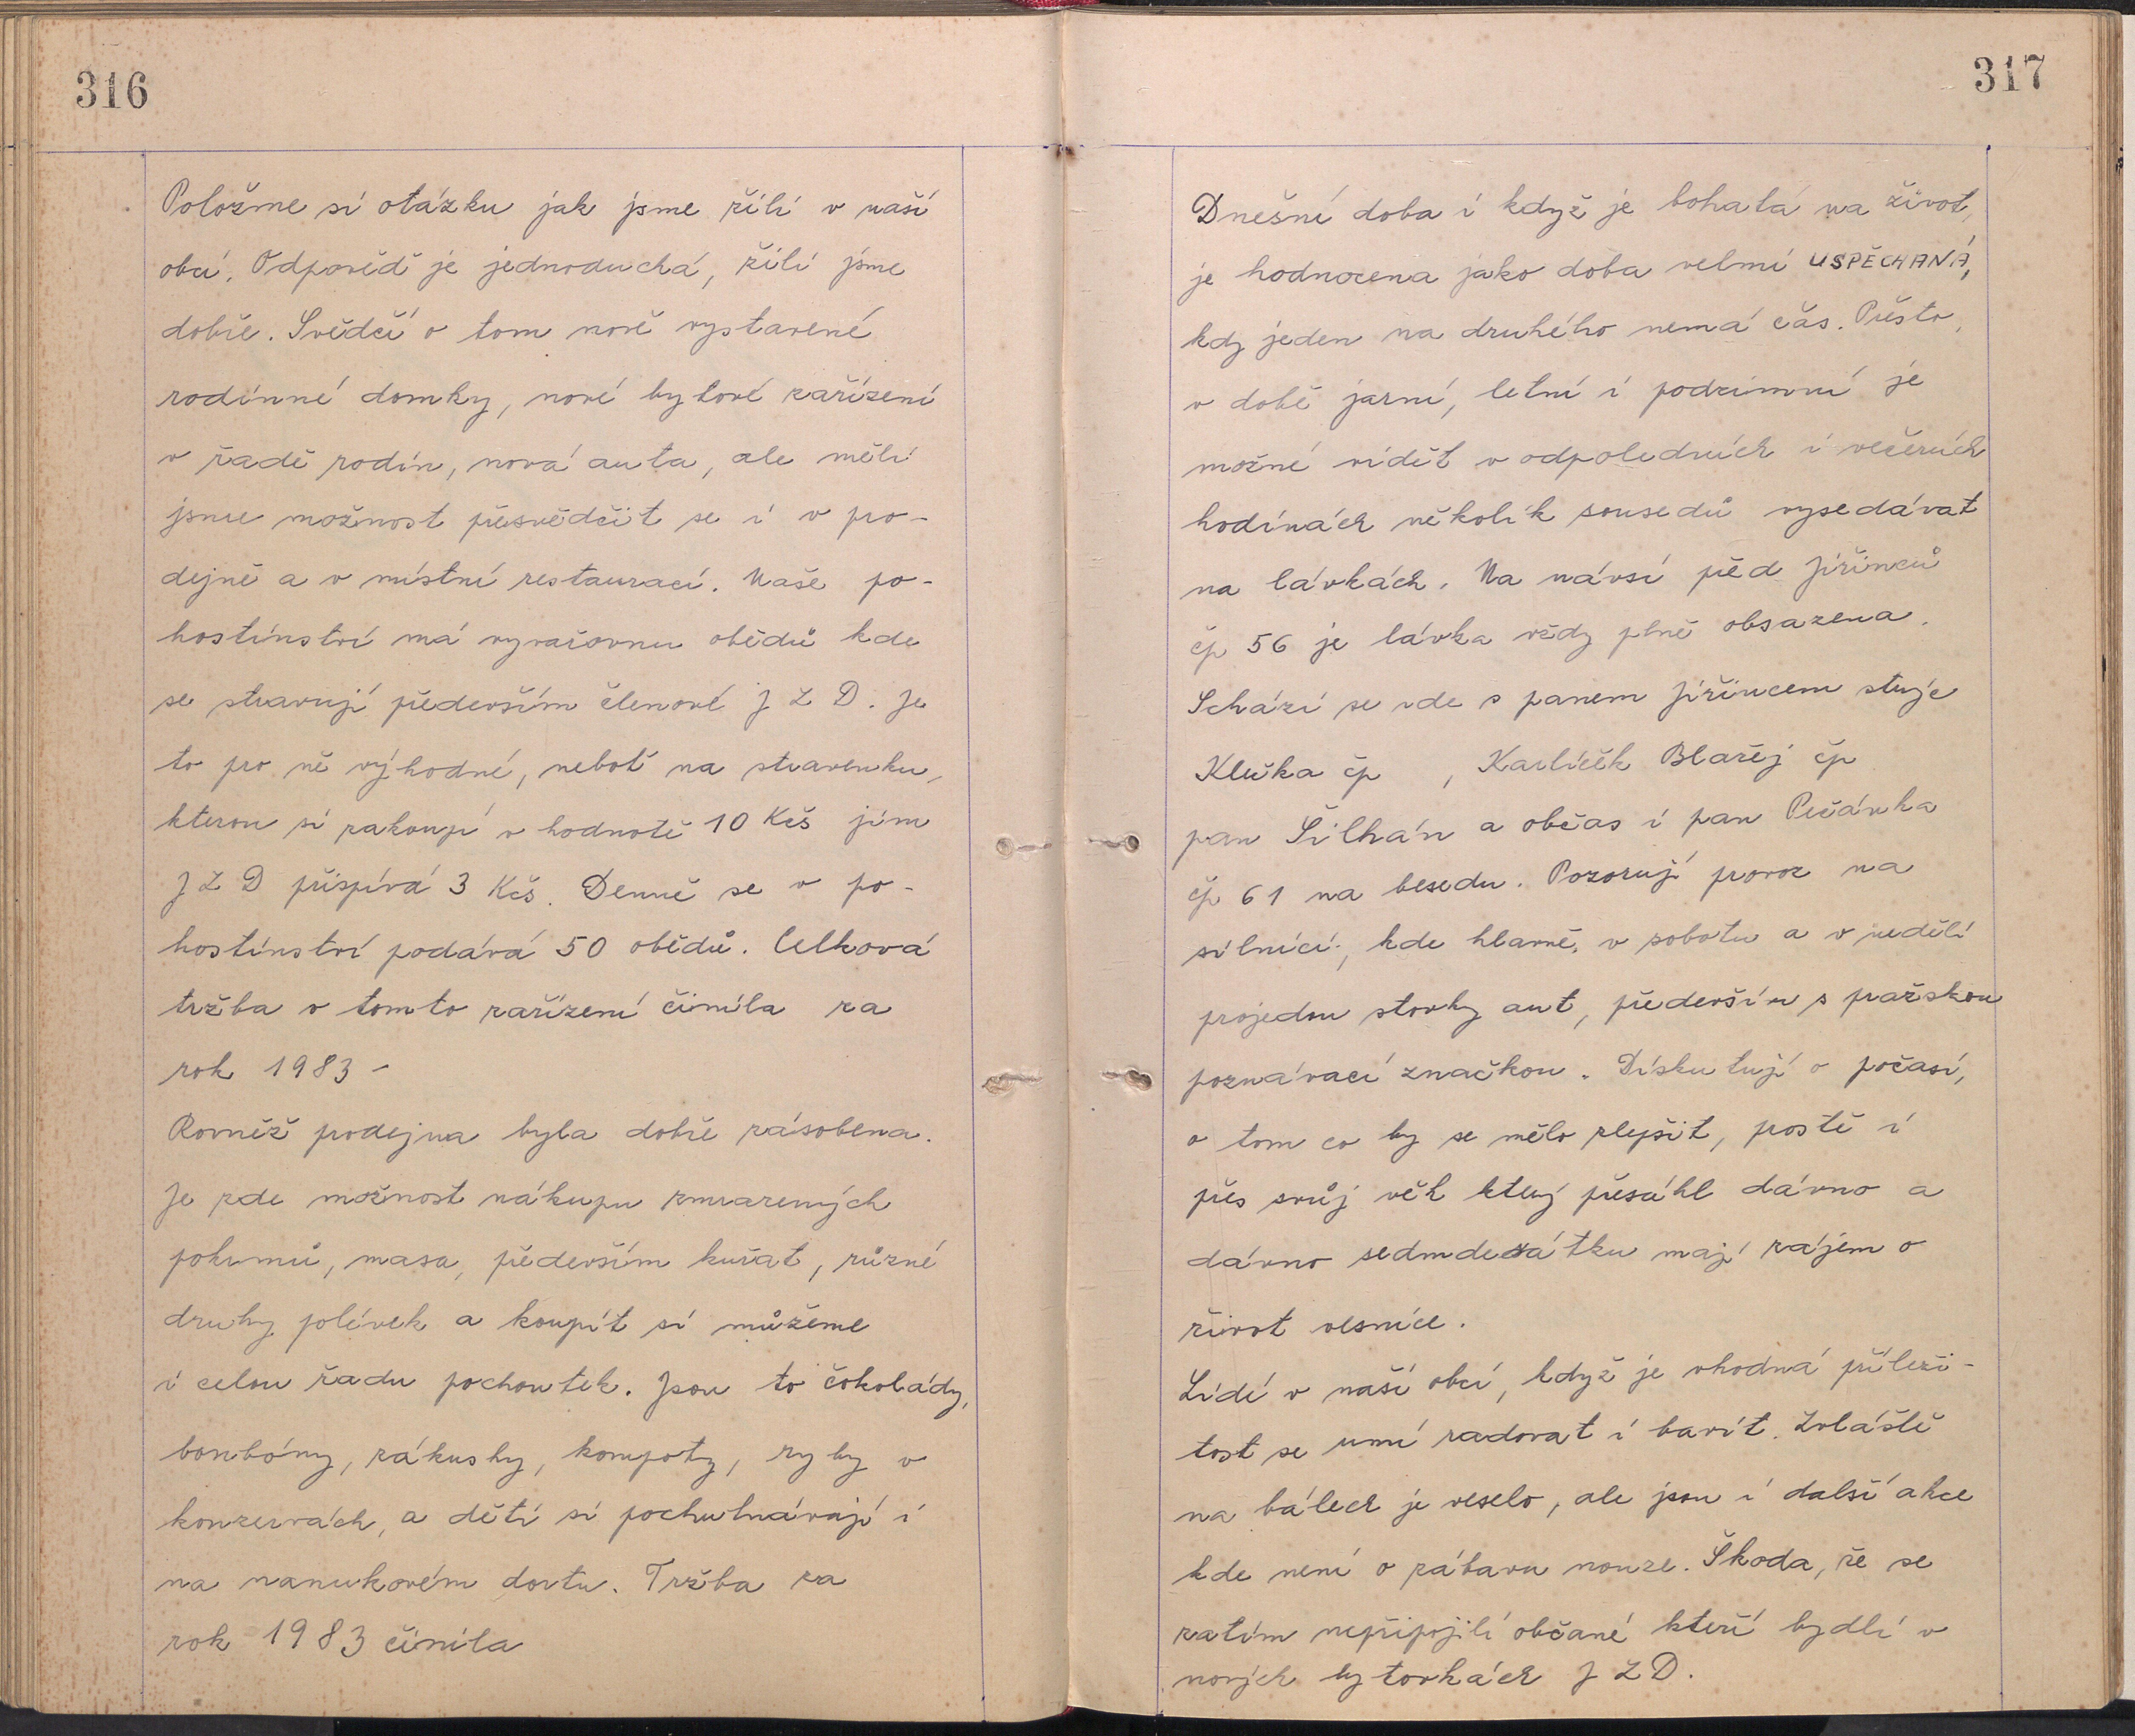 316
Položme si otázku jak jsme žili v naší
obci. Odpovědi je jednoduchá, žili jsme
dobře. Svědčí o tom nově vystavené
rodinné domky, nové bytové zařízení
v řadě rodin, nová auta, ale měli
jsme možnost přesvědčit se i v pro-
dejně a v místní restauraci. Naše po-
hostinství má vyvařovnu obědů kde
se stravují především členové JZD. Je
to pro ně výhodné, neboť na stravenku,
kterou si zakoupí v hodnotě 10 Kčs jim
JZD přispívá 3 Kčs. Denně se v po-
hostinství podává 50 obědů. Celková
tržba v tomto zařízení činila za
rok 1983 -
Rovněž prodejna byla dobře zásobena.
Je zde možnost nákupu zmrazených
pokrmů, masa, především kuřat, různé
druhy polévek a koupit si můžeme
i celou řadu pochoutek. Jsou to čokolády,
bonbóny, zákusky, kompoty, ryby v
konzervách, a děti si pochutnávají i
na nanukovém dortu. Tržba za
rok 1983 činila
317
Dnešní doba i když je bohatá na život,
je hodnocena jako doba velmi USPĚCHANÁ,
kdy jeden na druhého nemá čas. Přesto,
v době jarní, letní i podzimní je
možné vidět v odpoledních i večerních
hodinách několik sousedů vysedávat
na lávkách. Na návsi před Jiřinců
čp 56 je lávka vždy plně obsazena.
Schází se zde s panem Jiřincem stryje
Kluka čp , Karlíček Blažej čp
pan Šilhán a občas i pan Pečánka
čp 61 na besedu. Pozorují provoz na
silnici, kde hlavně, v sobotu a v neděli
projedou stovky aut, především s pražskou
poznávací značkou. Diskutují o počasí,
o tom co by se mělo zlepšit, prostě i
přes svůj věk který přesáhl dávno a
dávno sedmdesátku mají zájem o
život vesnice.
Lidé v naší obci, když je vhodná příleži-
tost se umí radovat i bavit. Zvláště
na bálech je veselo, ale jsou i další akce
kde není o zábavu nouze. Škoda, že se
zatím nepřipojili občané kteří bydlí v
nových bytovkách JZD.